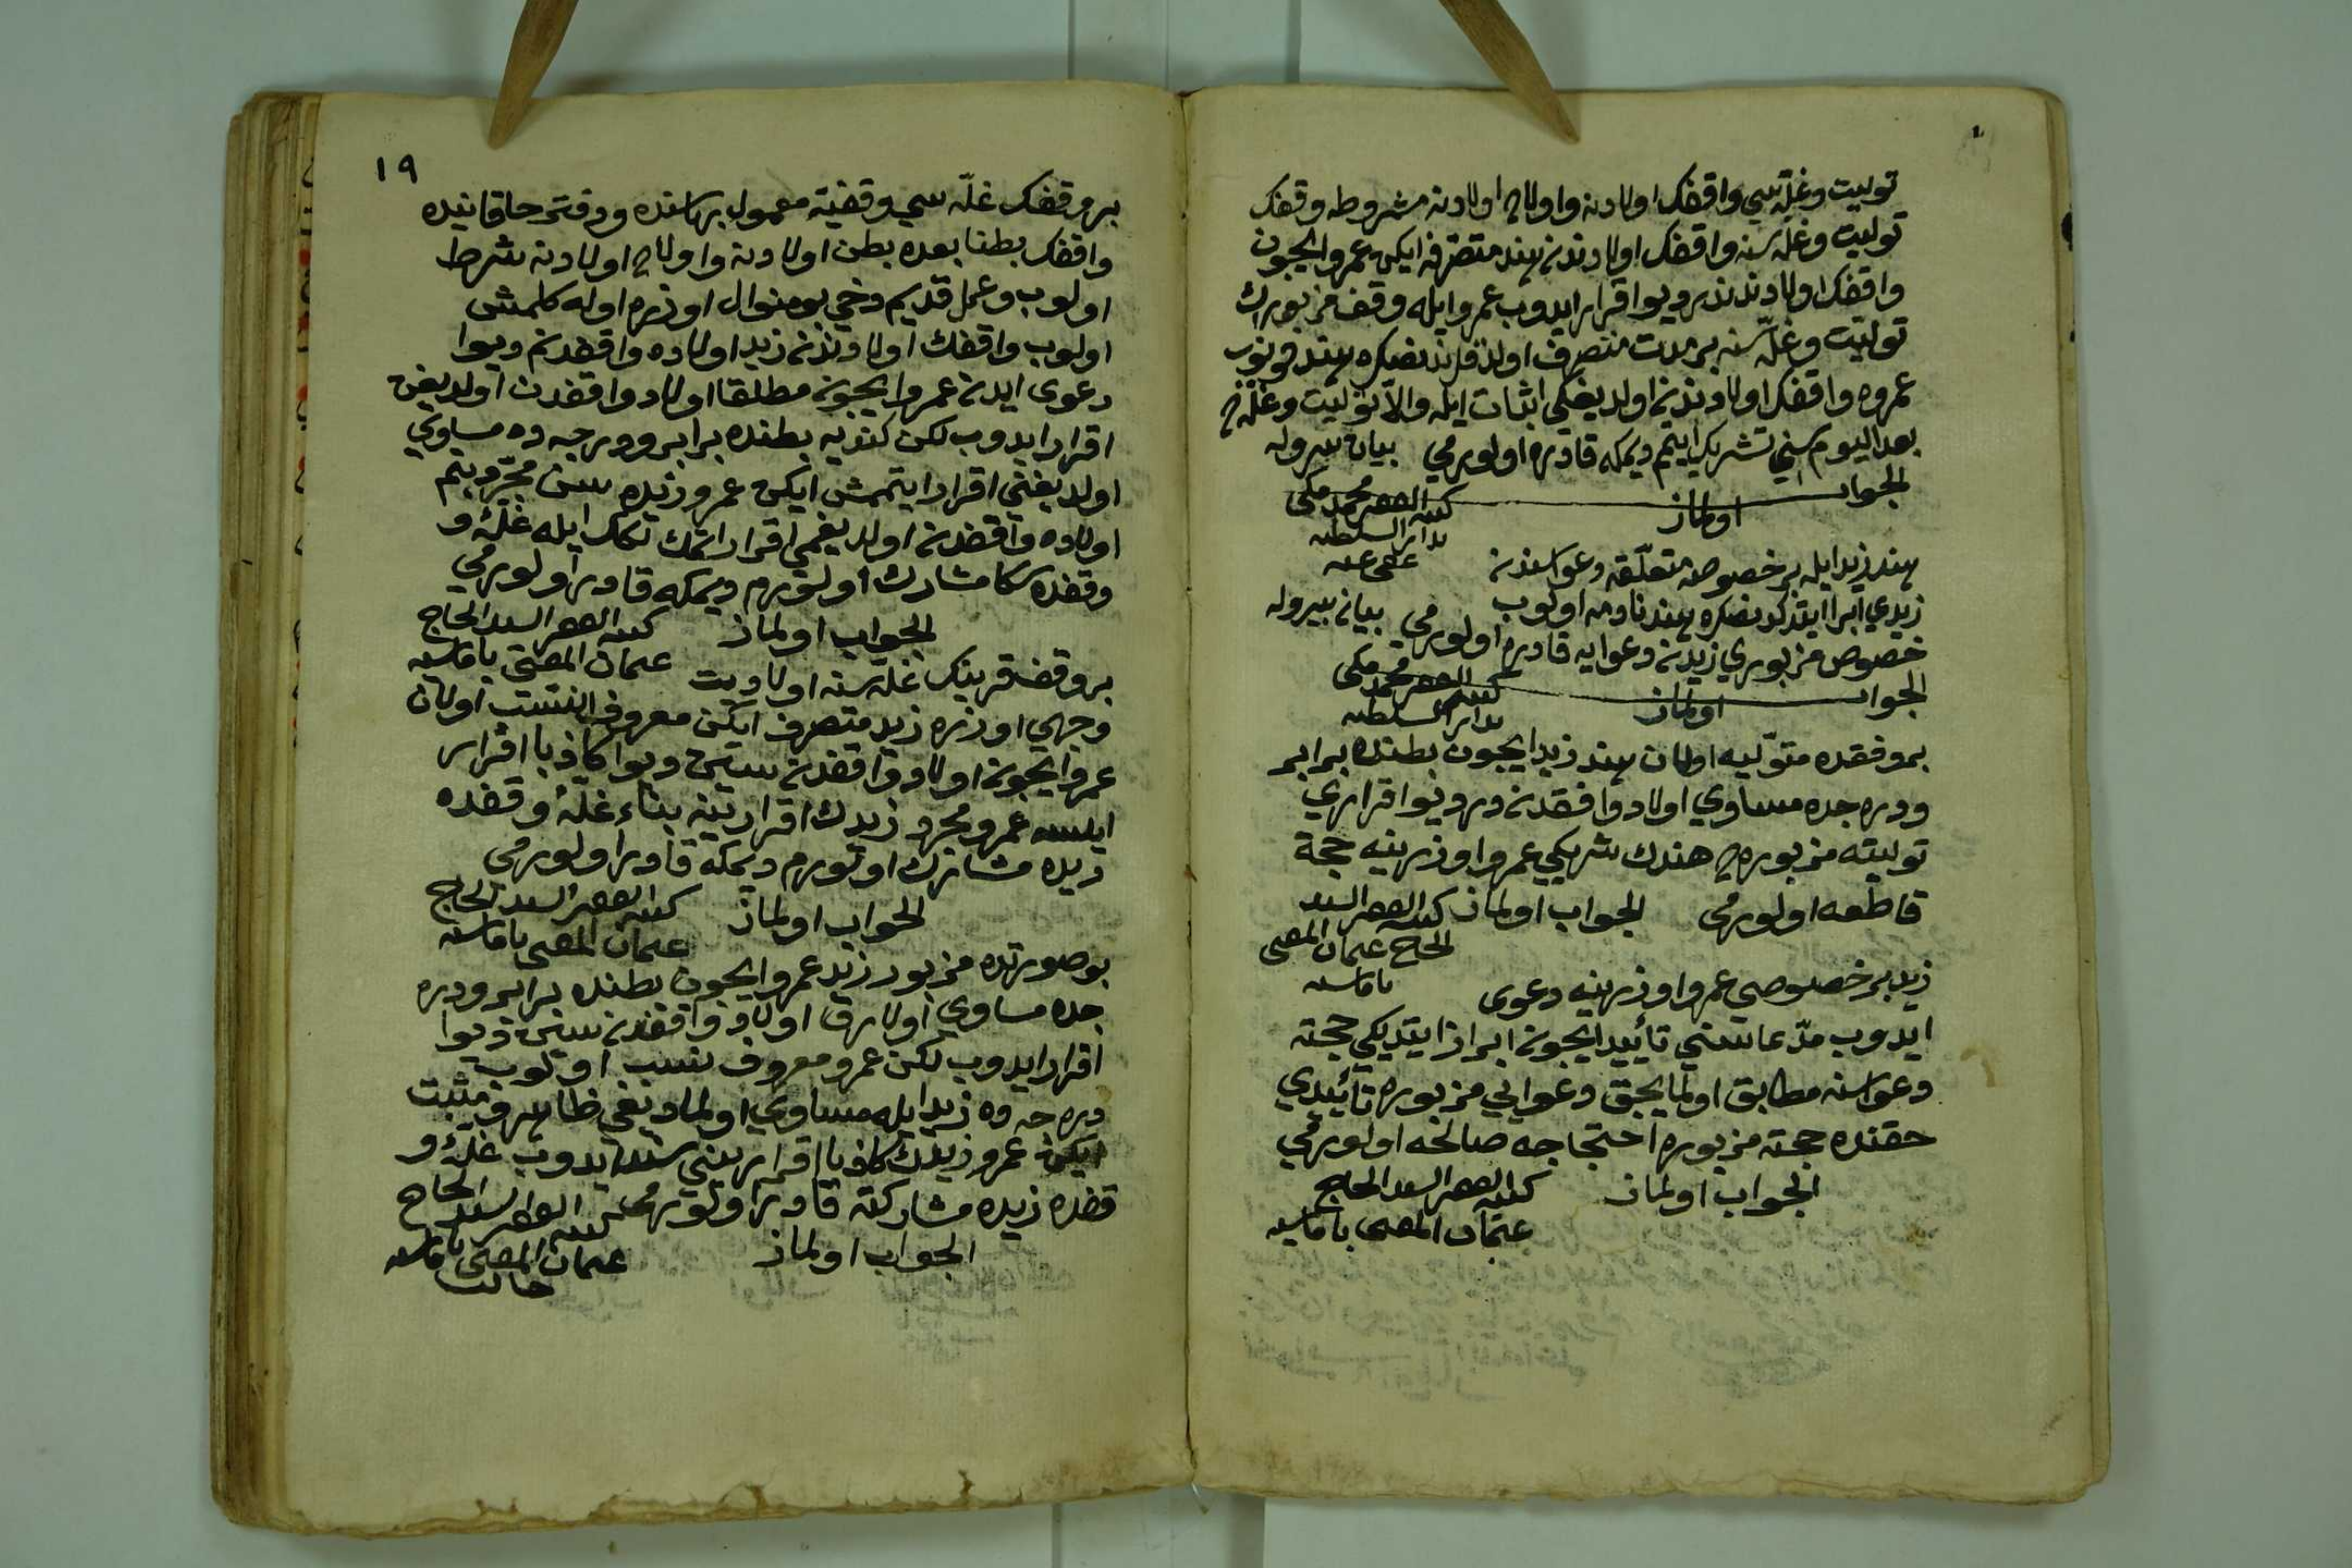 توليت وغلّه سي واقفك اولادنه واولاد اولادنه مشروطه وقفك
توليت وغلّه سنه واقفك اولادندن هند متصرفه ايكن عمرو ايچون
واقفك اولادندندر ديو اقرار ايدوب عمرو ايله وقف مزبورك
توليت وغلّه سنه بر مدت متصرف اولدقلرندنصكره هند فوتوب
عمروه واقفك اولادندن اولديغكى اثبات ايله والّا توليت وغلّه
بعد اليوم سني تشريك ايتمم ديمكه قادره اولورمي بيان بيروله
الجواب
اولماز
كتبه الفقير محمد مكى
بدار السلطنه
عفى عنه
هند زيد ايله بر خصوصه متعلّقه دعواسندن
زيدي ابرا ايتدكدنصكره هند نادمه اولوب
خصوص مزبوري زيدن دعوايه قادره اولورمي بيان بيروله
الجواب
اولماز
كتبه الفقير محمد مكى
بدار السلطنه
بر وقفده متوليه اولان هند زيد ايچون بطنده برابر
ودرجده مساوي اولاد واقفدندر ديو اقراري
توليته مزبوره هندك شريكي عمرو اوزرينه حجة
قاطعه اولورمي الجواب اولماز كتبه الفقير السيد
الحاج عثمان المفتى
زيد بر خصوصي عمرو اوزرينه دعوى
ايدوب مدّعاسني تأييد ايچون ابراز ايتديكي حجته
دعواسنه مطابق اولمايجق دعواي مزبوره تأييدي
حقنده حجته مزبوره احتجاجه صالحه اولورمي
الجواب اولماز
كتبه الفقير السيد الحاج
عثمان المفتى
١٩
بر وقفك غلّه سي وقفيه معمول بهاسنده ودفتر خاقانيده
واقفك بطنا بعده بطن اولادنه واولاد اولادنه شرط
اولوب وعمل قديم دخي بو منوال اوزره اوله كلمش
اولوب واقفك اولادندن زيد اولاده واقفدنم ديو
دعوى ايدن عمرو ايچون مطلقا اولاد واقفدن اولديغن
اقرار ايدوب لكن كنديه بطنده برابر ودرجه ده مساوي
اولديغني اقرار ايتمش ايكن عمرو زيده سن مجرّد بنم
اولاده واقفدن اولديغمي اقرار ايتمك ايله غلّهٔ
وقفده سكا مشارك اولورم ديمكه قادر اولورمي
الجواب اولماز
كتبه الفقير السيد الحاج
عثمان المفتى
بر وقف قرينك غلّه سنه اولاديت
وجهي اوزره زيد متصرف ايكن معروف النسب اولان
عمرو ايچون اولاد واقفدن سين ديو كاذبا اقرار
ايلسه عمرو مجرد زيدك اقرارينه بناء غلّهٔ وقفده
زيده مشارك اولورم ديمكه قادر اولورمى
الجواب اولماز
كتبه الفقير السيد الحاج
عثمان المفتى
بو صورتده مزبور زيد عمرو ايچون بطنده برابر ودر
جده مساوي اولارق اولاد واقفدن سين ديو
اقرار ايدوب لكن عمرو معروف نسب اولوب
درجه ده زيد ايله مساوي اولماديغي ظاهر ومثبت
ايكن عمرو زيدك كاذبا اقراريني سند ايدوب غلّهٔ و
قفده زيده مشاركته قادر اولورمى
الجواب اولماز
كتبه الفقير السيد الحاج
عثمان المفتى